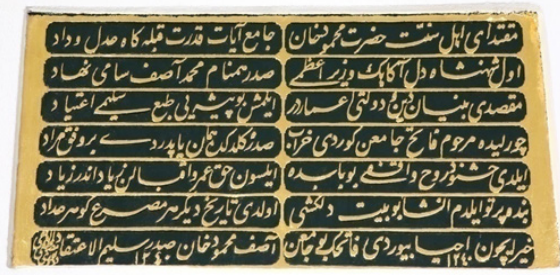 مقتدای اهل سنت حضرت محمود خان جامع آیات قدرت قبله کاه عدل و داد
اول شهنشاه دل آکاهک وزیر اعظمی صدر همنام محمد آصف سامی نهاد
مقصدی بنیان دین و دولتی عماردر ایلمش بو پیر یی طبع سلیمه اعتیاد
چورلیده مرحوم فاتح جامعن کوردی خراب صدره کلدکده همان یاپدردی بر وفق مراد
ایلدی خشنود روح واقفی بو بابده ایلسون حق عمر و اقبالن زیاد اندر زیاد
بنده پرتو ایلدم انشا بو بیت دلکشی اولدی تاریخ دیکر هر مصرع کوهر نژاد
خیر ایچون احیا بیوردی فاتحک بو معبدین آصف محمود خان صدر سلیم الاعتقاد
۱۲٤۰ ۱۲٤۰